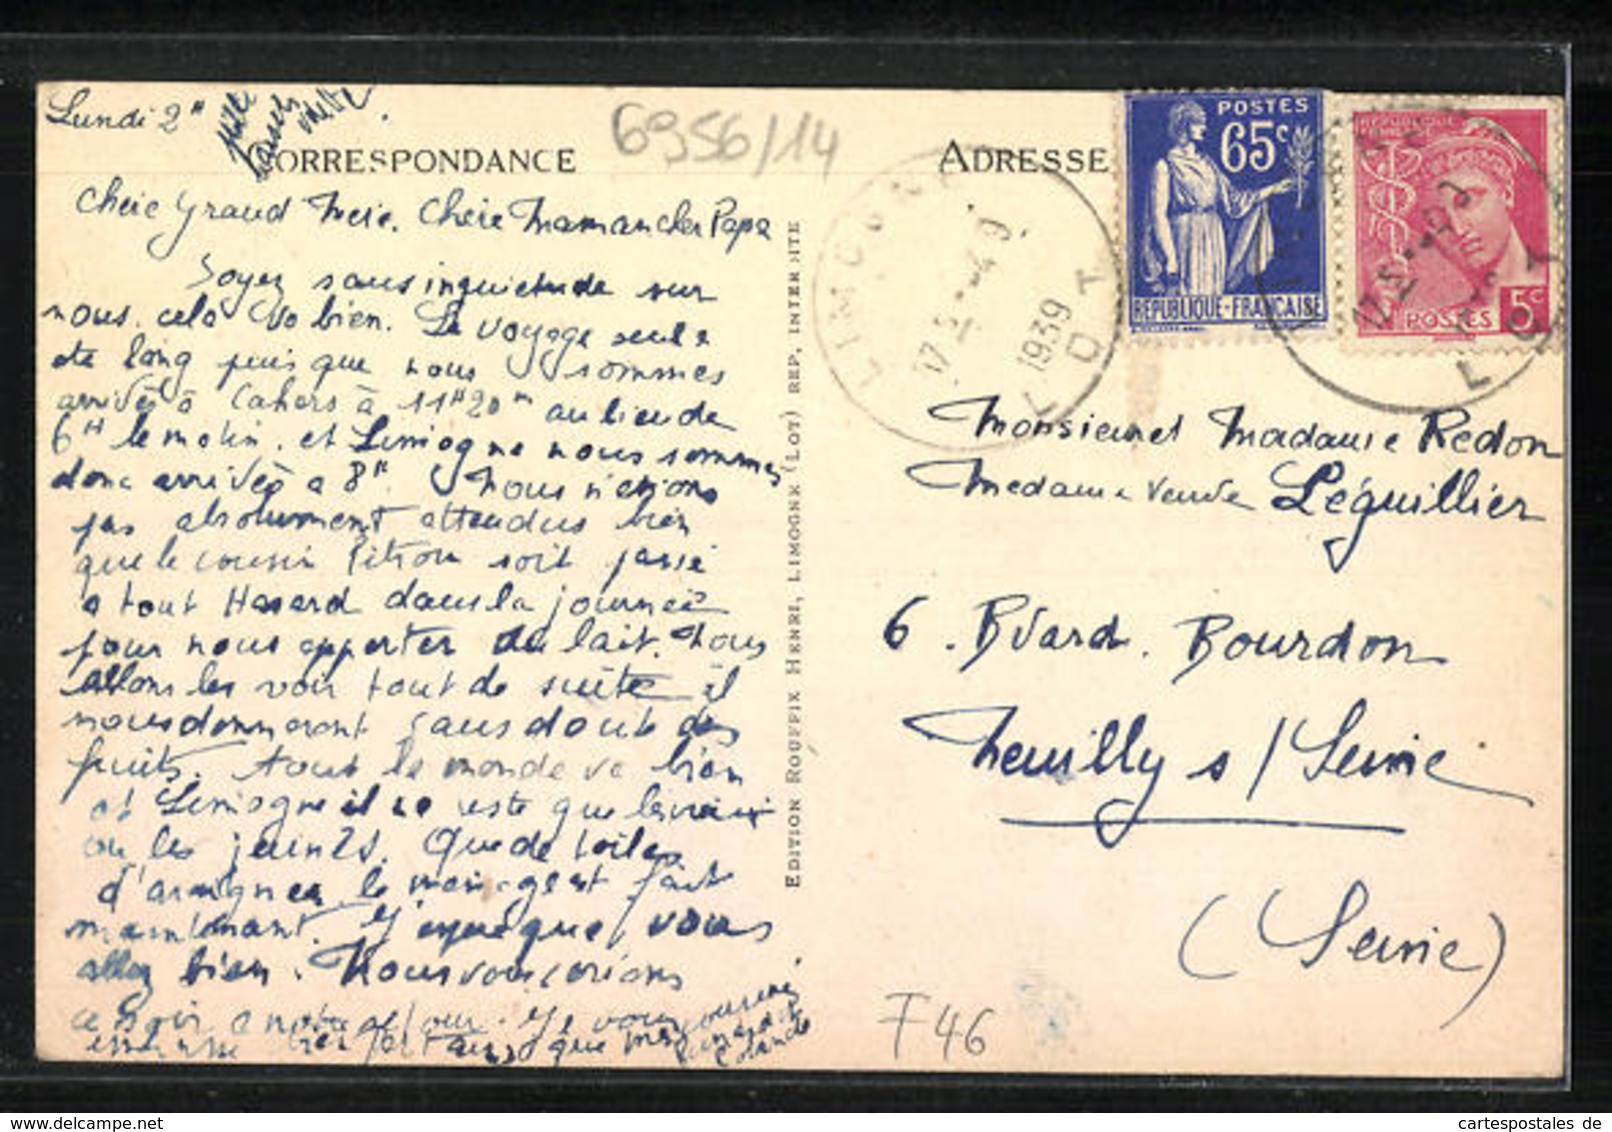 Lundi 2H
mille baisers
CORRESPONDANCE
6956/14
ADRESSE
Chère Grand Mère. Chère Maman Cher Papa
Soyez sans inquietude sur
nous. cela va bien. Le voyage seul a
été long puis que nous sommes
arrivés à Cahors à 11H20m au lieu de
6H le matin. et Limogne nous sommes
donc arrivés a 8H. Nous n'etions
pas absolument attendus bien
que le cousin Pitron soit passé
a tout Hasard dans la journée
pour nous apporter du lait. Nous
allons les voir tout de suite il
nous donneront sans doute des
fruits. tout le monde va bien
et Limogne il ne reste que les vieux
ou les jeunes. Que de toiles
d'araignées le menage est fait
maintenant. J'espère que vous
allez bien. Nous vous ecrirons
ce soir a notre retour. Je vous
embrasse bien fort ainsi que mes
EDITION ROUFFIX HENRI, LIMOGNE (LOT) REP, INTERDITE
LIMOGNE
17 5 - 4 0
1939
LOT
POSTES
65c
REPUBLIQUE-FRANÇAISE
REPUBLIQUE FRANÇAISE
POSTES 5c
LOT
Monsieur et Madame Redon
Madame veuve Léguillier
6. Bvard. Bourdon
Neuilly s/Seine
(Seine)
F46
cartespostales de